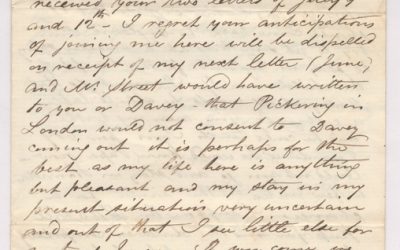 received your two letters of July 9
and 12th. I regret your anticipations
of joining me here will be dispelled
on receipt of my next letter (June)
and Mr. Street would have written
to you or Davey - that Pickering in
London would not consent to Davey
coming out it is perhaps for the
best as my life here is anything
but pleasant and my stay in my
present situation very uncertain
and out of that I see little else for